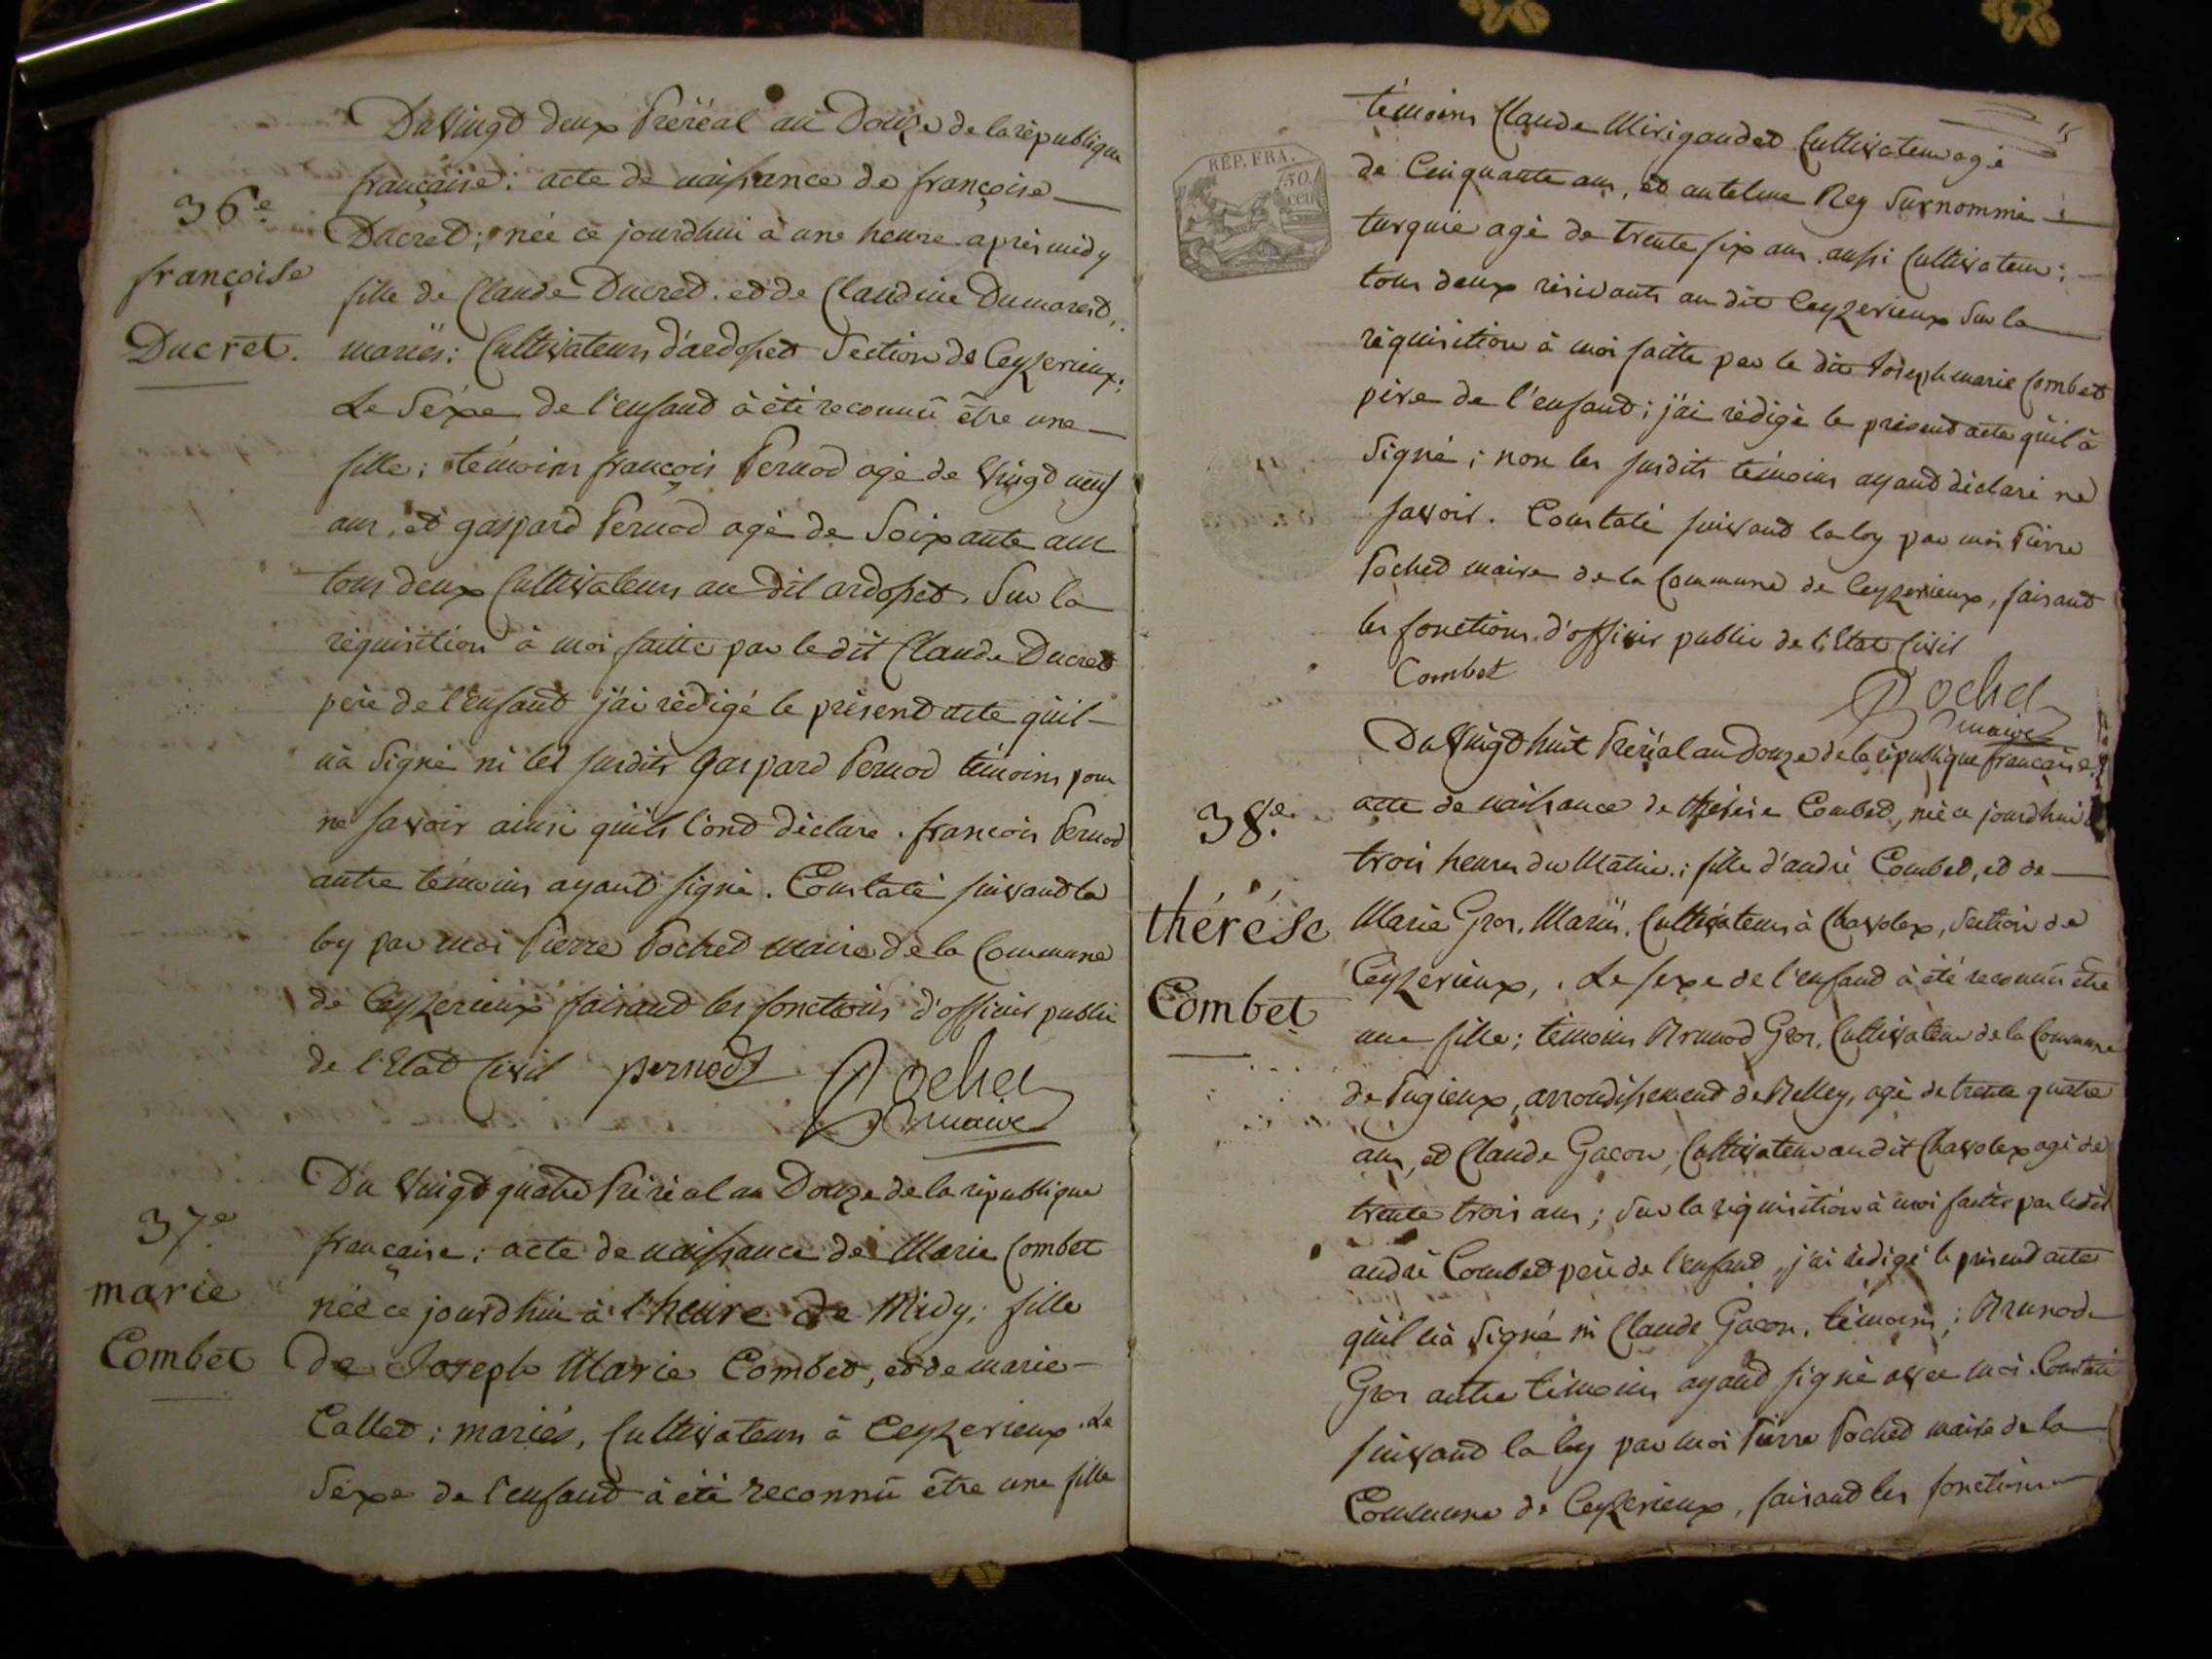 Du Vingt deux Préréal an Douze de la république
française: acte de naissance de françoise
Ducret; née ce jourdhui à une heure après midy
fille de Claude Ducret. et de Claudine Dumarest,
mariés: Cultivateurs d'ardosset Section de Ceyzerieux;
Le Séxe de l'enfant à été reconnû être une
fille; témoins françois Pernod agé de Vingt neuf
ans, et gaspard Pernod agé de Soixante ans
tous deux Cultivateurs au dit ardosset, Sur la
réquisition à moi faitte par le dit Claude Ducret
père de l'enfant j'ai rédigé le présent acte qu'il
n'à Signé ni les susdits gaspard Pernod témoins pour
ne savoir ainsi qu'ils l'ont déclare. françois Pernod
autre témoins ayant signé. Constaté suivant la
loy par moi Pierre Pochet maire de la Commune
de Ceyzerieux faisant les fonctions d'officier public
de l'Etat Civil pernodt Pochet
maire
36e
françoise
Ducret.
Du Vingt quatre Préréal an Douze de la république
française: acte de naissance de Marie Combet
née ce jourdhui à l'heure de Midy; fille
De Joseph Marie Combet, et de marie
Callet: mariés, Cultivateurs à Ceyzerieux. Le
Séxe de l'enfant à été reconnû être une fille
37e
marie
Combet
15
RÉP. FRA.
50.
cent
témoins Claude Mirigaudet Cultivateur agé
de Cinquante ans, et antelme Rey Surnommé
turquie agé de trente six ans aussi Cultivateur;
tous deux résidants au dit Ceyzerieux Sur la
réquisition à moi faitte par le dit Joseph marie Combet
père de l'enfant; j'ai rédigé le présent acte qu'il à
Signé; non les susdits témoins ayant déclaré ne
savoir. Constaté suivant la loy par moi Pierre
Pochet maire de la Commune de Ceyzerieux, faisant
les fonctions d'officier public de l'Etat Civil
Combet
Pochet
maire
Du Vingt huit Préréal an Douze de la république française
acte de naissance de thérése Combet, née ce jourdhui à
trois heures du Matin; fille d'andré Combet, et de
Marie Gros, Mariés, Cultivateurs à Chavolex, Section de
Ceyzerieux, . Le sexe de l'enfant à été reconnû être
une fille; témoins Brunod Gros, Cultivateur de la Commune
de Pugieux, arrondissement de Belley, agé de trente quatre
ans, et Claude Gacon, Cultivateur au dit Chavolex agé de
trente trois ans; Sur la réquisition à moi faitte par ledit
andré Combet père de l'enfant, j'ai rédigé le présent acte
qu'il n'à Signé ni Claude Gacon, témoins; Brunod
Gros autre témoins ayant signé avec moi. Constaté
suivant la loy par moi Pierre Pochet maire de la
Commune de Ceyzerieux, faisant les fonctions
38e.
thérése
Combet